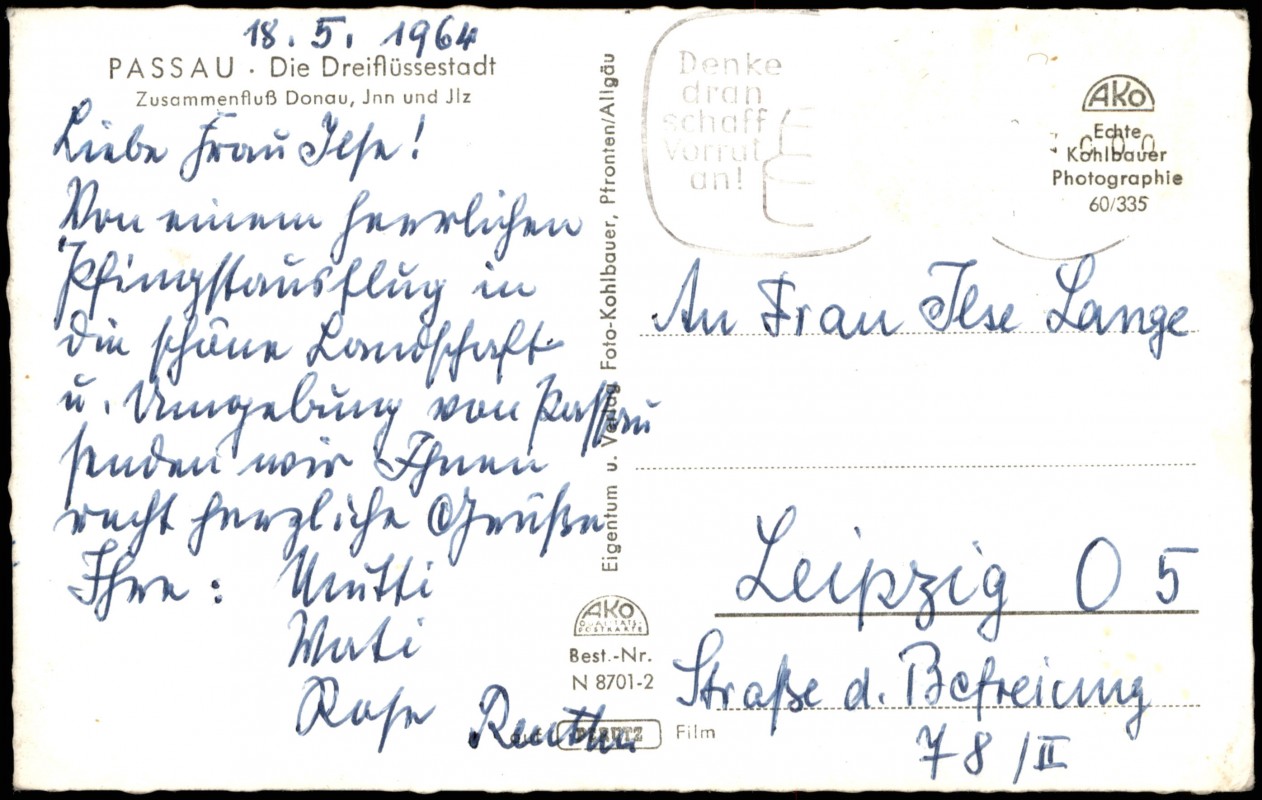 18. 5. 1964
PASSAU · Die Dreiflüssestadt
Zusammenfluß Donau, Jnn und Jlz
Liebe Frau Ilse!
Von einem herrlichen
Pfingstausflug in
die schöne Landschaft
u. Umgebung von Passau
senden wir Ihnen
recht herzliche Grüße
Ihre: Mutti
Vati
Rose
Eigentum u. Verlag Foto-Kohlbauer, Pfronten/Allgäu
AKO
QUALITÄTS-
POSTKARTE
Best.-Nr.
N 8701-2
auf PERUTZ Film
Denke
dran
schaff
Vorrat
an!
AKO
Echte
Kohlbauer
Photographie
60/335
An Frau Ilse Lange
Leipzig O 5
Straße d. Befreiung
78/II